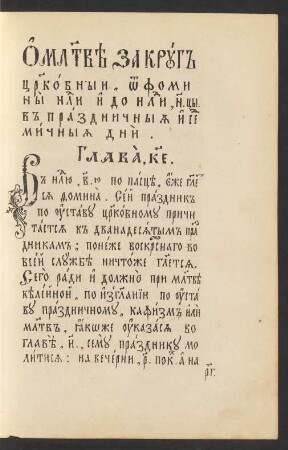 Ѡ МЛ҃ТВѢ ЗА КРꙊГЪ
ЦР҃КО́ВНЫИ, Ѿ ФОМИ
НЫ̀ НЛ҃И И҆ ДО НЛ҃И, Н҃, ЦЫ.
В̾ ПРА́ЗДНИЧНЫѦ И҆ СЕ
МИ́ЧНЫѦ ДНЍ.
ГЛАВА̀, К҃Е.
Въ нл҃ю, в҃, ю по пасцѣ, є҆́же гл҃ет
сѧ ѳомина. Се́й пра́здникъ
по ᲂу҆ста́вꙋ цр҃ко́вномꙋ причи
та́етсѧ къ двана́десѧтымъ пра́з
дникамъ; поне́же воскр҃снаго во
все́й слꙋ́жбѣ ничто́же гл҃етсѧ.
Сего̀ ра́ди и҆ до́лжно при мл҃твѣ
кѣле́йной, по и҆зглⷶнїи по ᲂу҆ста
вꙋ пра́здничномꙋ, каѳи́змъ и҆лѝ
мл҃твъ, та́кожде ᲂу҆каза́сѧ во
главѣ̀, и҃, семꙋ̀ пра́зднику мо
ли́тисѧ: на вече́рни, р҃, покⷧ. а҆ на
рг҃.